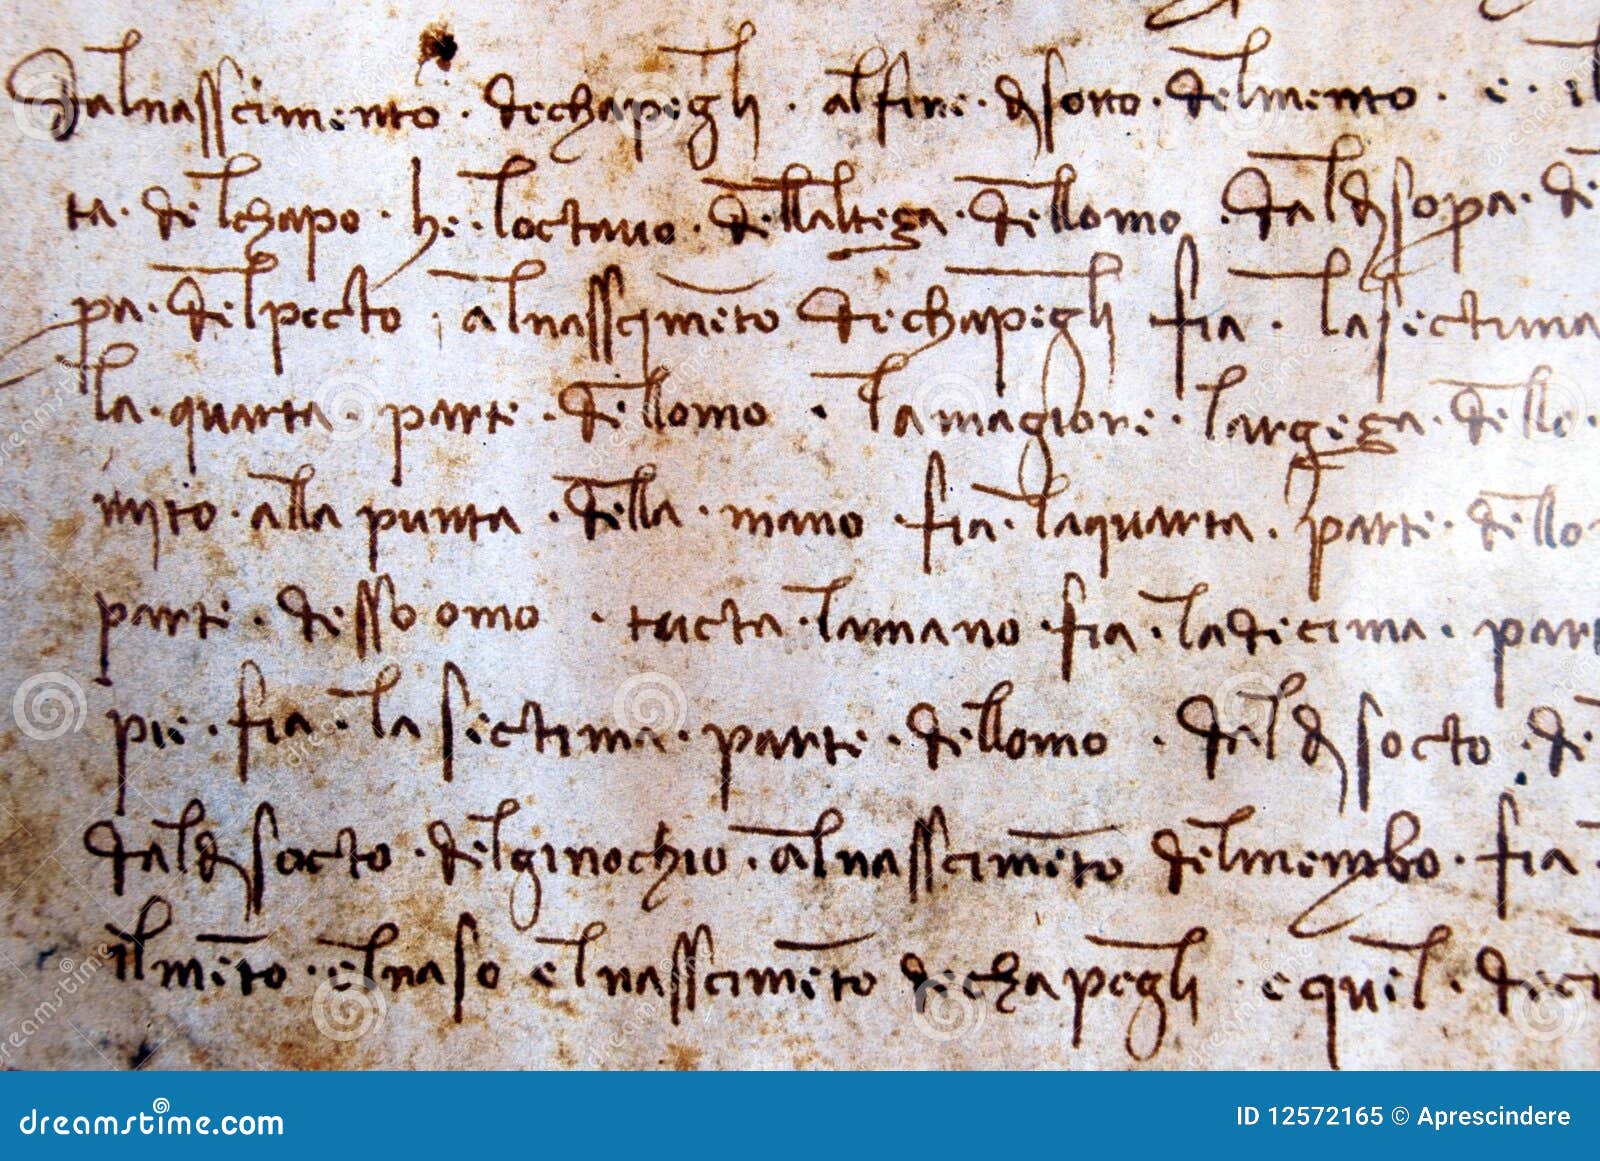 Dalnasscimento · dechapegli · alfine · dj socto · delmento · e · il
ta · delchapo · he · loctavo · dellaltega · dellomo · dal dj sopa · de
pa · del pecto · al nasscimeto dechapegli fia · la sectima
la · quarta · parte · dellomo · la magiore · largega · dello ·
mito · alla punta · della · mano · fia · laquarta · parte · dello
parte · desso omo · tucta · lamano · fia · ladecima · part
pie · fia · la sectima · parte · dellomo · dal dj socto · de
dal dj socto · del ginochio · al nasscimeto del membo · fia ·
il meto · el naso e l nasscimeto de chapegli · e quel · deci
dreamstime.com
ID 12572165 © Aprescindere